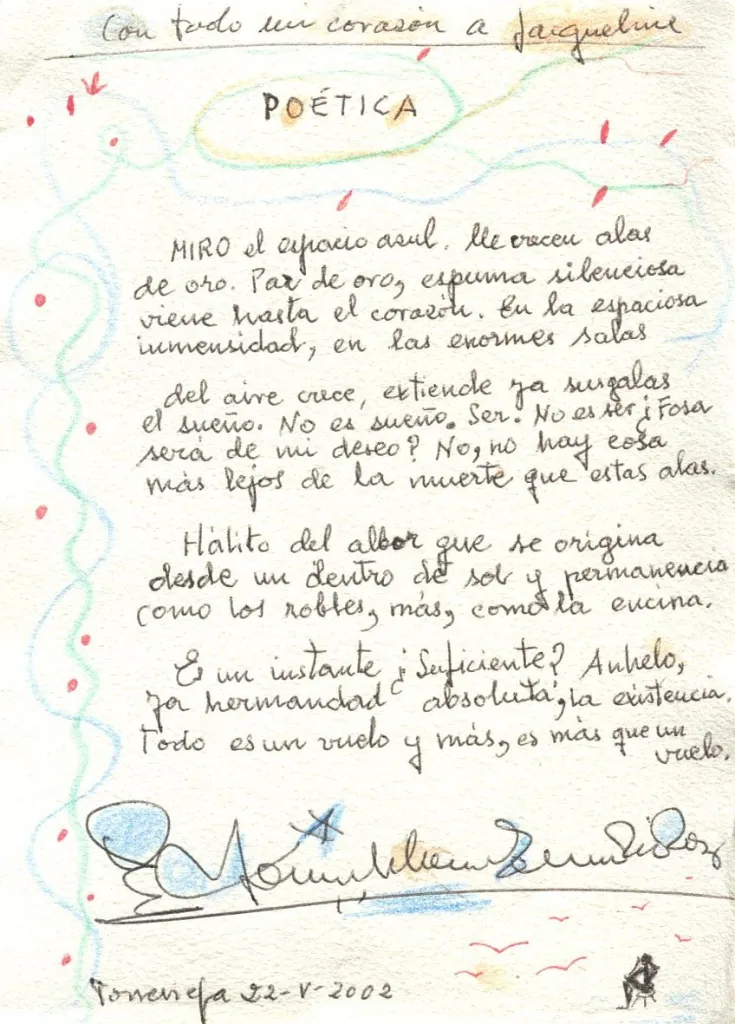 Con todo mi corazón a Jacqueline
POÉTICA
MIRO el espacio azul. Me crecen alas
de oro. Paz de oro, espuma silenciosa
viene hasta el corazón. En la espaciosa
inmensidad, en las enormes salas
del aire crece, extiende ya sus galas
el sueño. No es sueño. Ser. No es ser ¿Fosa
será de mi deseo? No, no hay cosa
más lejos de la muerte que estas alas.
Hálito del albor que se origina
desde un dentro de sol y permanencia
como los robles, más, como la encina.
Es un instante ¿Suficiente? Anhelo,
ya hermandad absoluta, la existencia.
Todo es un vuelo y más, es más que un
vuelo.
22-V-2002